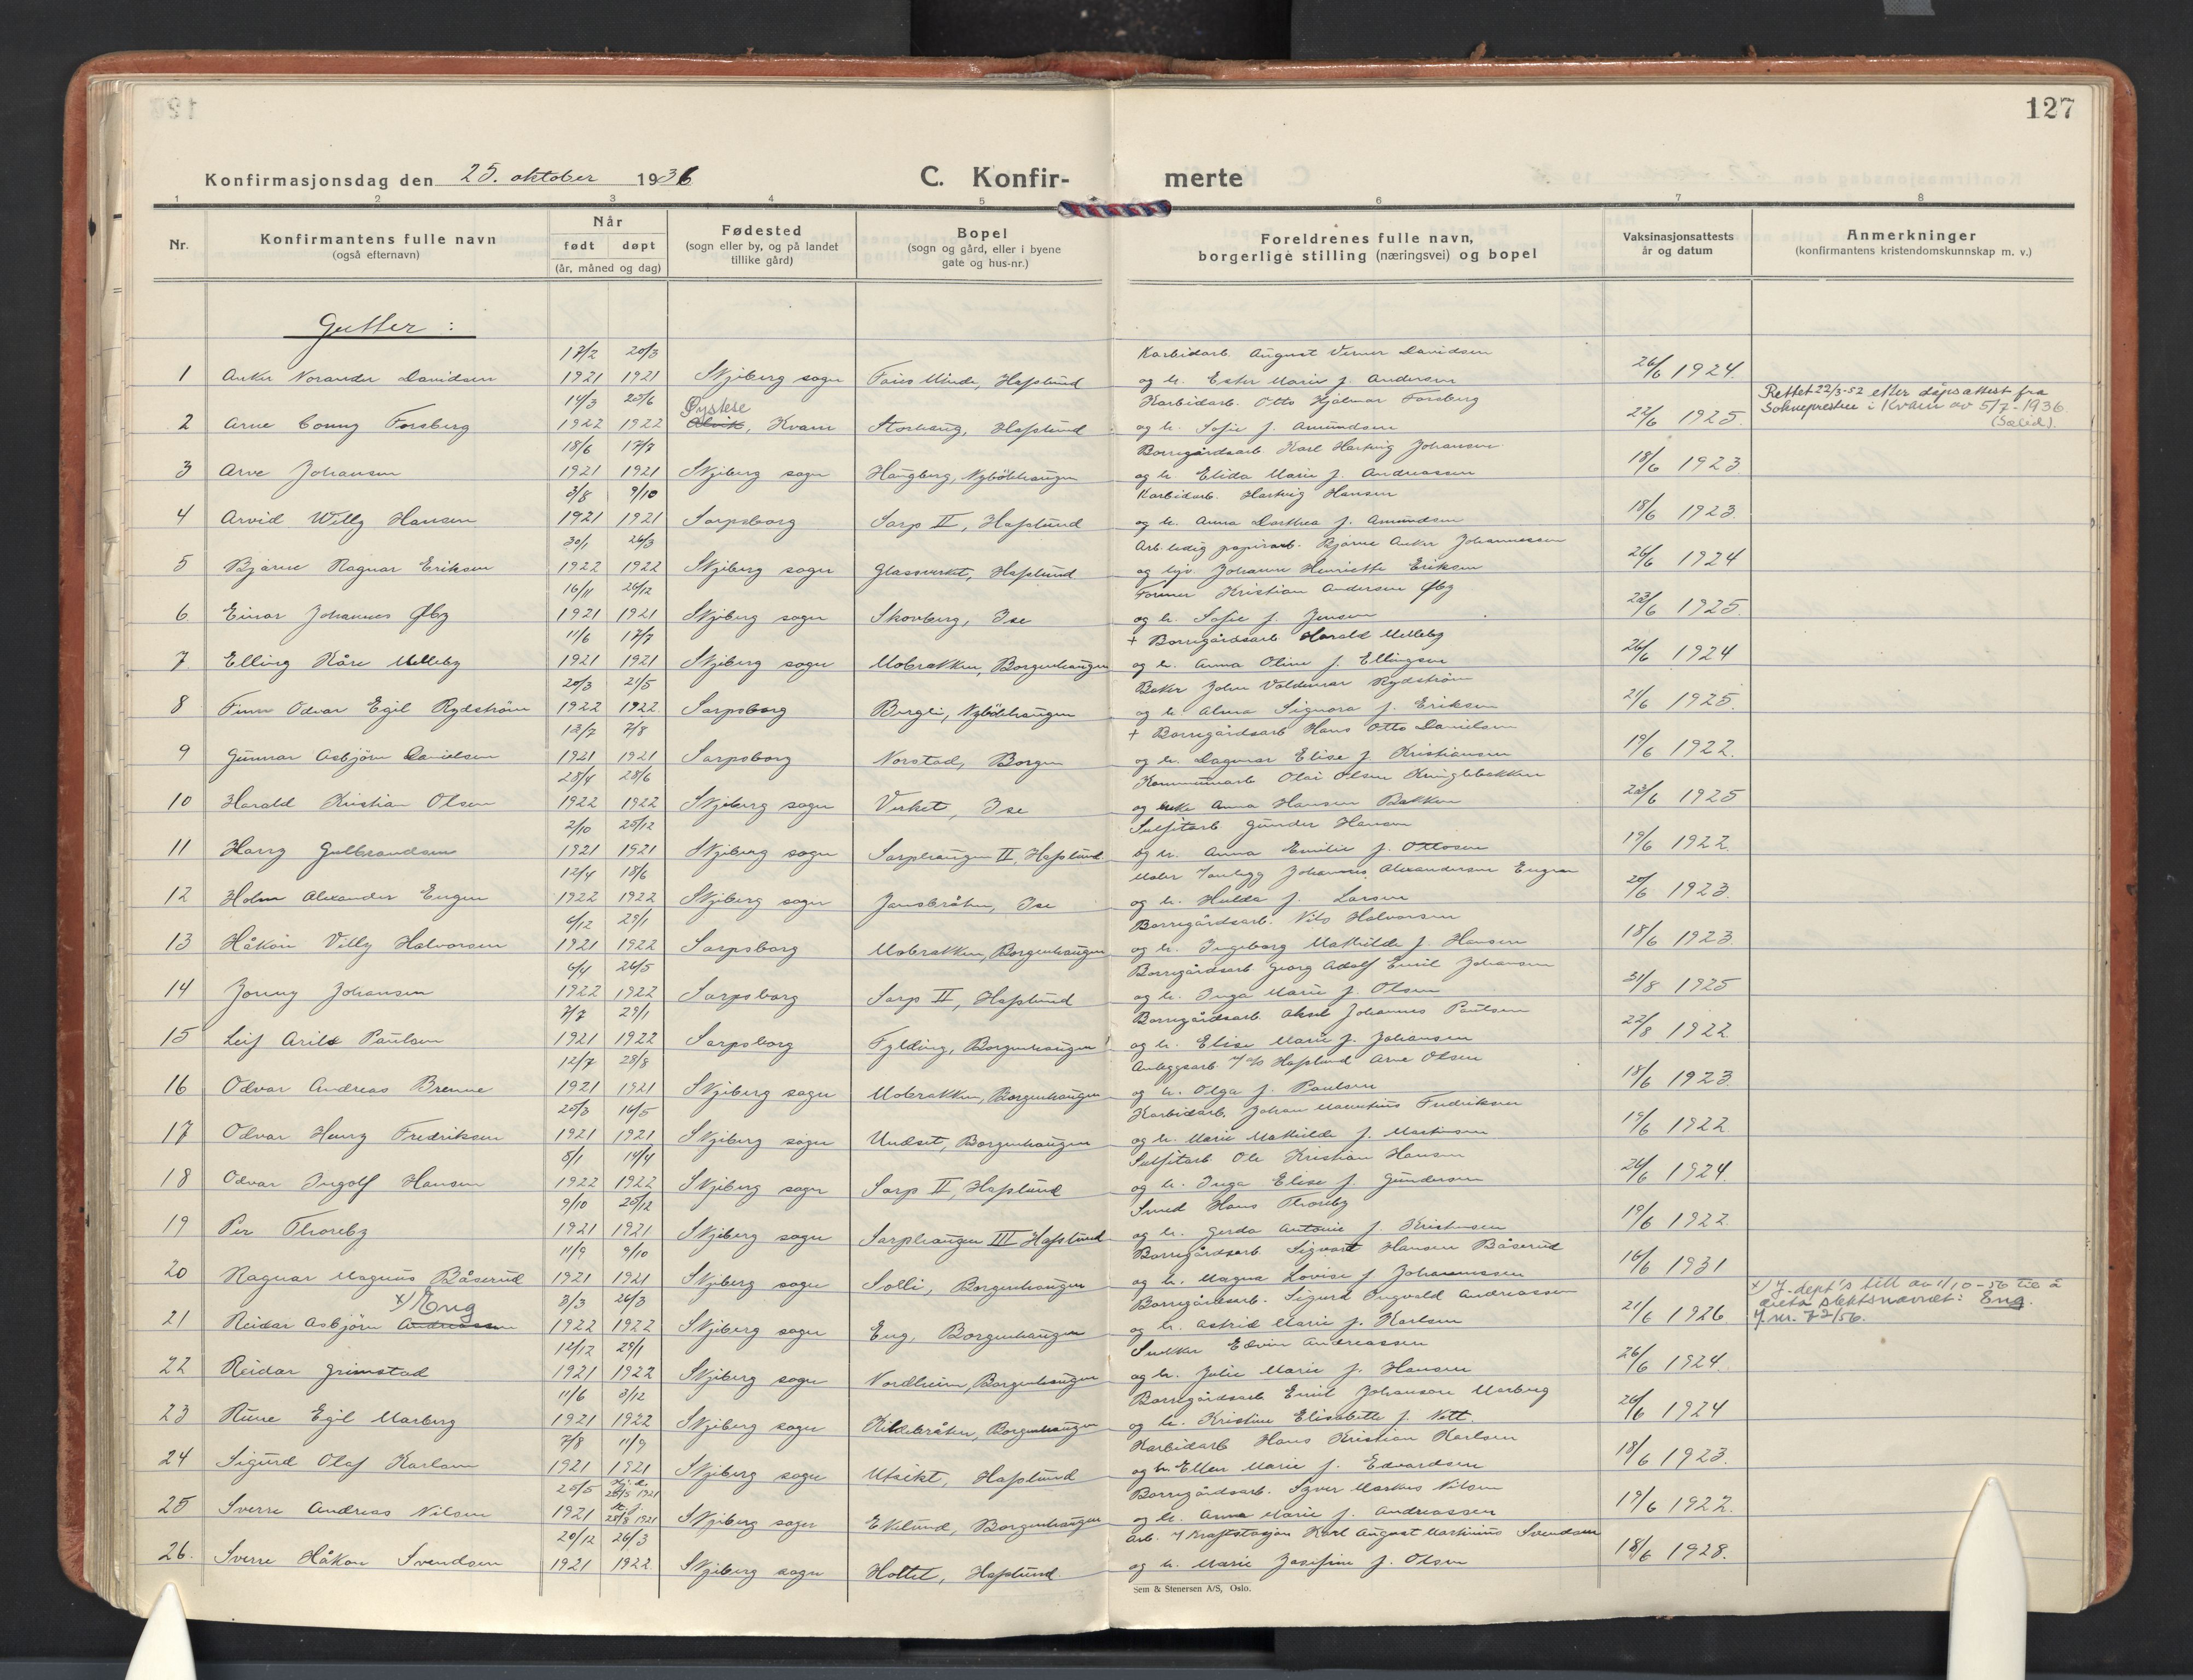 127
Konfirmasjonsdag den 25. oktober 1936
C. Konfir- merte
1 2 3 4 5 6 7 8
Nr.
Konfirmantens fulle navn
(også efternavn)
Når
født døpt
(år, måned og dag)
Fødested
(sogn eller by, og på landet
tillike gård)
Bopel
(sogn og gård, eller i byene
gate og hus-nr.)
Foreldrenes fulle navn,
borgerlige stilling (næringsvei) og bopel
Vaksinasjonsattests
år og datum
Anmerkninger
(konfirmantens kristendomskunnskap m. v.)
Gutter :
17/2 20/3 Karbidarb. August Verner Davidsen
1 Anker Norander Davidsen 1921 1921 Skjeberg sogn Minde, Hafslund og h. Ester Marie f. Andersen 26/6 1924.
14/3 25/6 Øystese Karbidarb. Otto Hjalmar Forsberg Rettet 22/3-52 efter dåpsattest fra
2 Arne Conny Forsberg 1922 1922 Alvik, Kvam Storhaug, Hafslund og h. Sofie f. Amundsen 22/6 1925. Sokneprestee i Kvam av 5/7-1936.
18/6 17/7 Borregårdsarb. Karl Hartvig Johansen
3 Arve Johansen 1921 1921 Skjeberg sogn Haugberg, Nybölehaugen og h. Elida Marie f. Andreassen 18/6 1923
3/8 9/10 Karbidarb. Hartvig Hansen
4 Arvid Willy Hansen 1921 1921 Sarpsborg Sarp II, Hafslund og h. Anna Dorthea f. Amundsen 18/6 1923.
30/1 26/3 Arb.ledig papirarb. Bjarne Anker Johannessen
5 Bjarne Ragnar Eriksen 1922 1922 Skjeberg sogn Glassverket, Hafslund og hjv. Johanne Henriette Eriksen 26/6 1924
16/11 26/12 Former Kristian Andersen Øby
6 Einar Johannes Øby 1921 1921 Skjeberg sogn Skovberg, Ise og h. Sofie f. Jensen 23/6 1925.
11/6 17/7 + Borregårdsarb Harald Melleby
7 Elling Kåre Melleby 1921 1921 Skjeberg sogn Mobrakken, Borgenhaugen og h. Anna Oline f. Ellingsen 26/6 1924
20/3 21/5 Baker John Valdemar Rydström
8 Finn Odvar Egil Rydström 1922 1922 Sarpsborg Bergli, Nybölehaugen og h. Alma Signora f. Eriksen 21/6 1925.
12/7 7/8 + Borregårdsarb Hans Otto Danielsen
9 Gunnar Asbjörn Danielsen 1921 1921 Sarpsborg Norstad, Borgen og h. Dagmar Elise f Kristiansen 19/6 1922.
28/4 28/6 Kommunearb Olai Olsen Kringlebakken
10 Harald Kristian Olsen 1922 1922 Skjeberg sogn Verket, Ise og enke Anna Hansen Bakken 23/6 1925
2/10 25/12 Sulfitarb. Gunder Hansen
11 Harry Gulbrandsen 1921 1921 Skjeberg sogn Sarphaugen II, Hafslund. og h. Anna Emilie f. Ottosen 19/6 1922.
12/4 18/6 Maler Johannes Alexandersen Engen
12 Holm Alexander Engen 1922 1922 Skjeberg sogn Jansbråten, Ise og h. Hulda f. Larsen 20/6 1923.
6/12 29/1 Borregårdsarb. Nils Halvorsen
13 Håkon Villy Halvorsen 1921 1922 Sarpsborg Mobrakken, Borgenhaugen og h. Ingeborg Mathilde f. Hansen 18/6 1923.
6/4 26/5 Borregårdsarb Georg Adolf Emil Johansen
14 Jonny Johansen 1922 1922 Sarpsborg Sarp II, Hafslund og h. Inga Marie f. Olsen 31/8 1925
7/7 29/1 Borregårdsarb. Aksel Johannes Paulsen
15 Leif Arild Paulsen 1921 1922 Sarpsborg Fylding, Borgenhaugen og h. Elise Marie f. Johansen 22/8 1922.
12/7 28/8 Anleggsarb. Hafslund Arne Olsen
16 Odvar Andreas Brenne 1921 1921 Skjeberg sogn Mobrakken, Borgenhaugen og h. Olga f. Paulsen 18/6 1923.
25/3 16/5 Karbidarb. Johan Martinius Fredriksen
17 Odvar Henry Fredriksen 1921 1921 Skjeberg sogn Undset, Borgenhaugen og h. Marie Mathilde f. Martinsen 19/6 1922.
5/1 14/4 Sulfitarb Ole Kristian Hansen
18 Odvar Ingolf Hansen 1922 1922 Skjeberg sogn Sarp II, Hafslund og h. Inga Elise f. Gundersen 26/6 1924.
9/10 25/12 Smed Hans Thoreby
19 Per Thoreby 1921 1921 Skjeberg sogn Sarphaugen III Hafslund og h. Gerda Antonie f. Kristensen 19/6 1922.
11/9 9/10 Borregårdsarb Sigvart Hansen Båserud
20 Ragnar Magnus Båserud 1921 1921 Skjeberg sogn Solli, Borgenhaugen og h. Magna Lovise f. Johannessen 16/6 1931
x) Eng 3/3 26/3 Borregårdsarb. Sigurd Ingvald Andreassen x) J.dept's till. av 1/10-56 til å
21 Reidar Asbjörn Andreassen 1922 1922 Skjeberg sogn Eng, Borgenhaugen og h. Astrid Marie f. Karlsen 21/6 1926 slektsnavnet: Eng.
J.nr. 72/56.
12/12 29/1 Snekker Edvin Andreassen
22 Reidar Grimstad 1921 1922 Skjeberg sogn Nordheim, Borgenhaugen og h. Julie Marie f. Hansen 26/6 1924.
11/6 3/12 Borregårdsarb Emil Johansen Marberg
23 Rune Egil Marberg 1921 1922 Skjeberg sogn Kildebråten, Borgenhaugen og h. Kristine Elisabette f. Nett. 26/6 1924
7/8 11/9 Karbidarb Hans Kristian Karlsen
24 Sigurd Olaf Karlsen 1921 1921 Skjeberg sogn Utsikt, Hafslund og h. Ellen Marie f. Edvardsen 18/6 1923.
25/5 25/5 1921 Borregårdsarb. Syver Markus Nilsen
25 Sverre Andreas Nilsen 1921 28/8 1921 Skjeberg sogn Ekelund, Borgenhaugen og h. Anna Marie f. Andreassen 19/6 1922.
20/12 26/3 Arb. Kraftstasjon Karl August Martinius Svendsen
26. Sverre Håkon Svendsen 1921 1922 Skjeberg sogn Holtet, Hafslund og h. Marie Josefine f. Olsen 18/6 1928.
Sem & Stenersen A/S, Oslo.